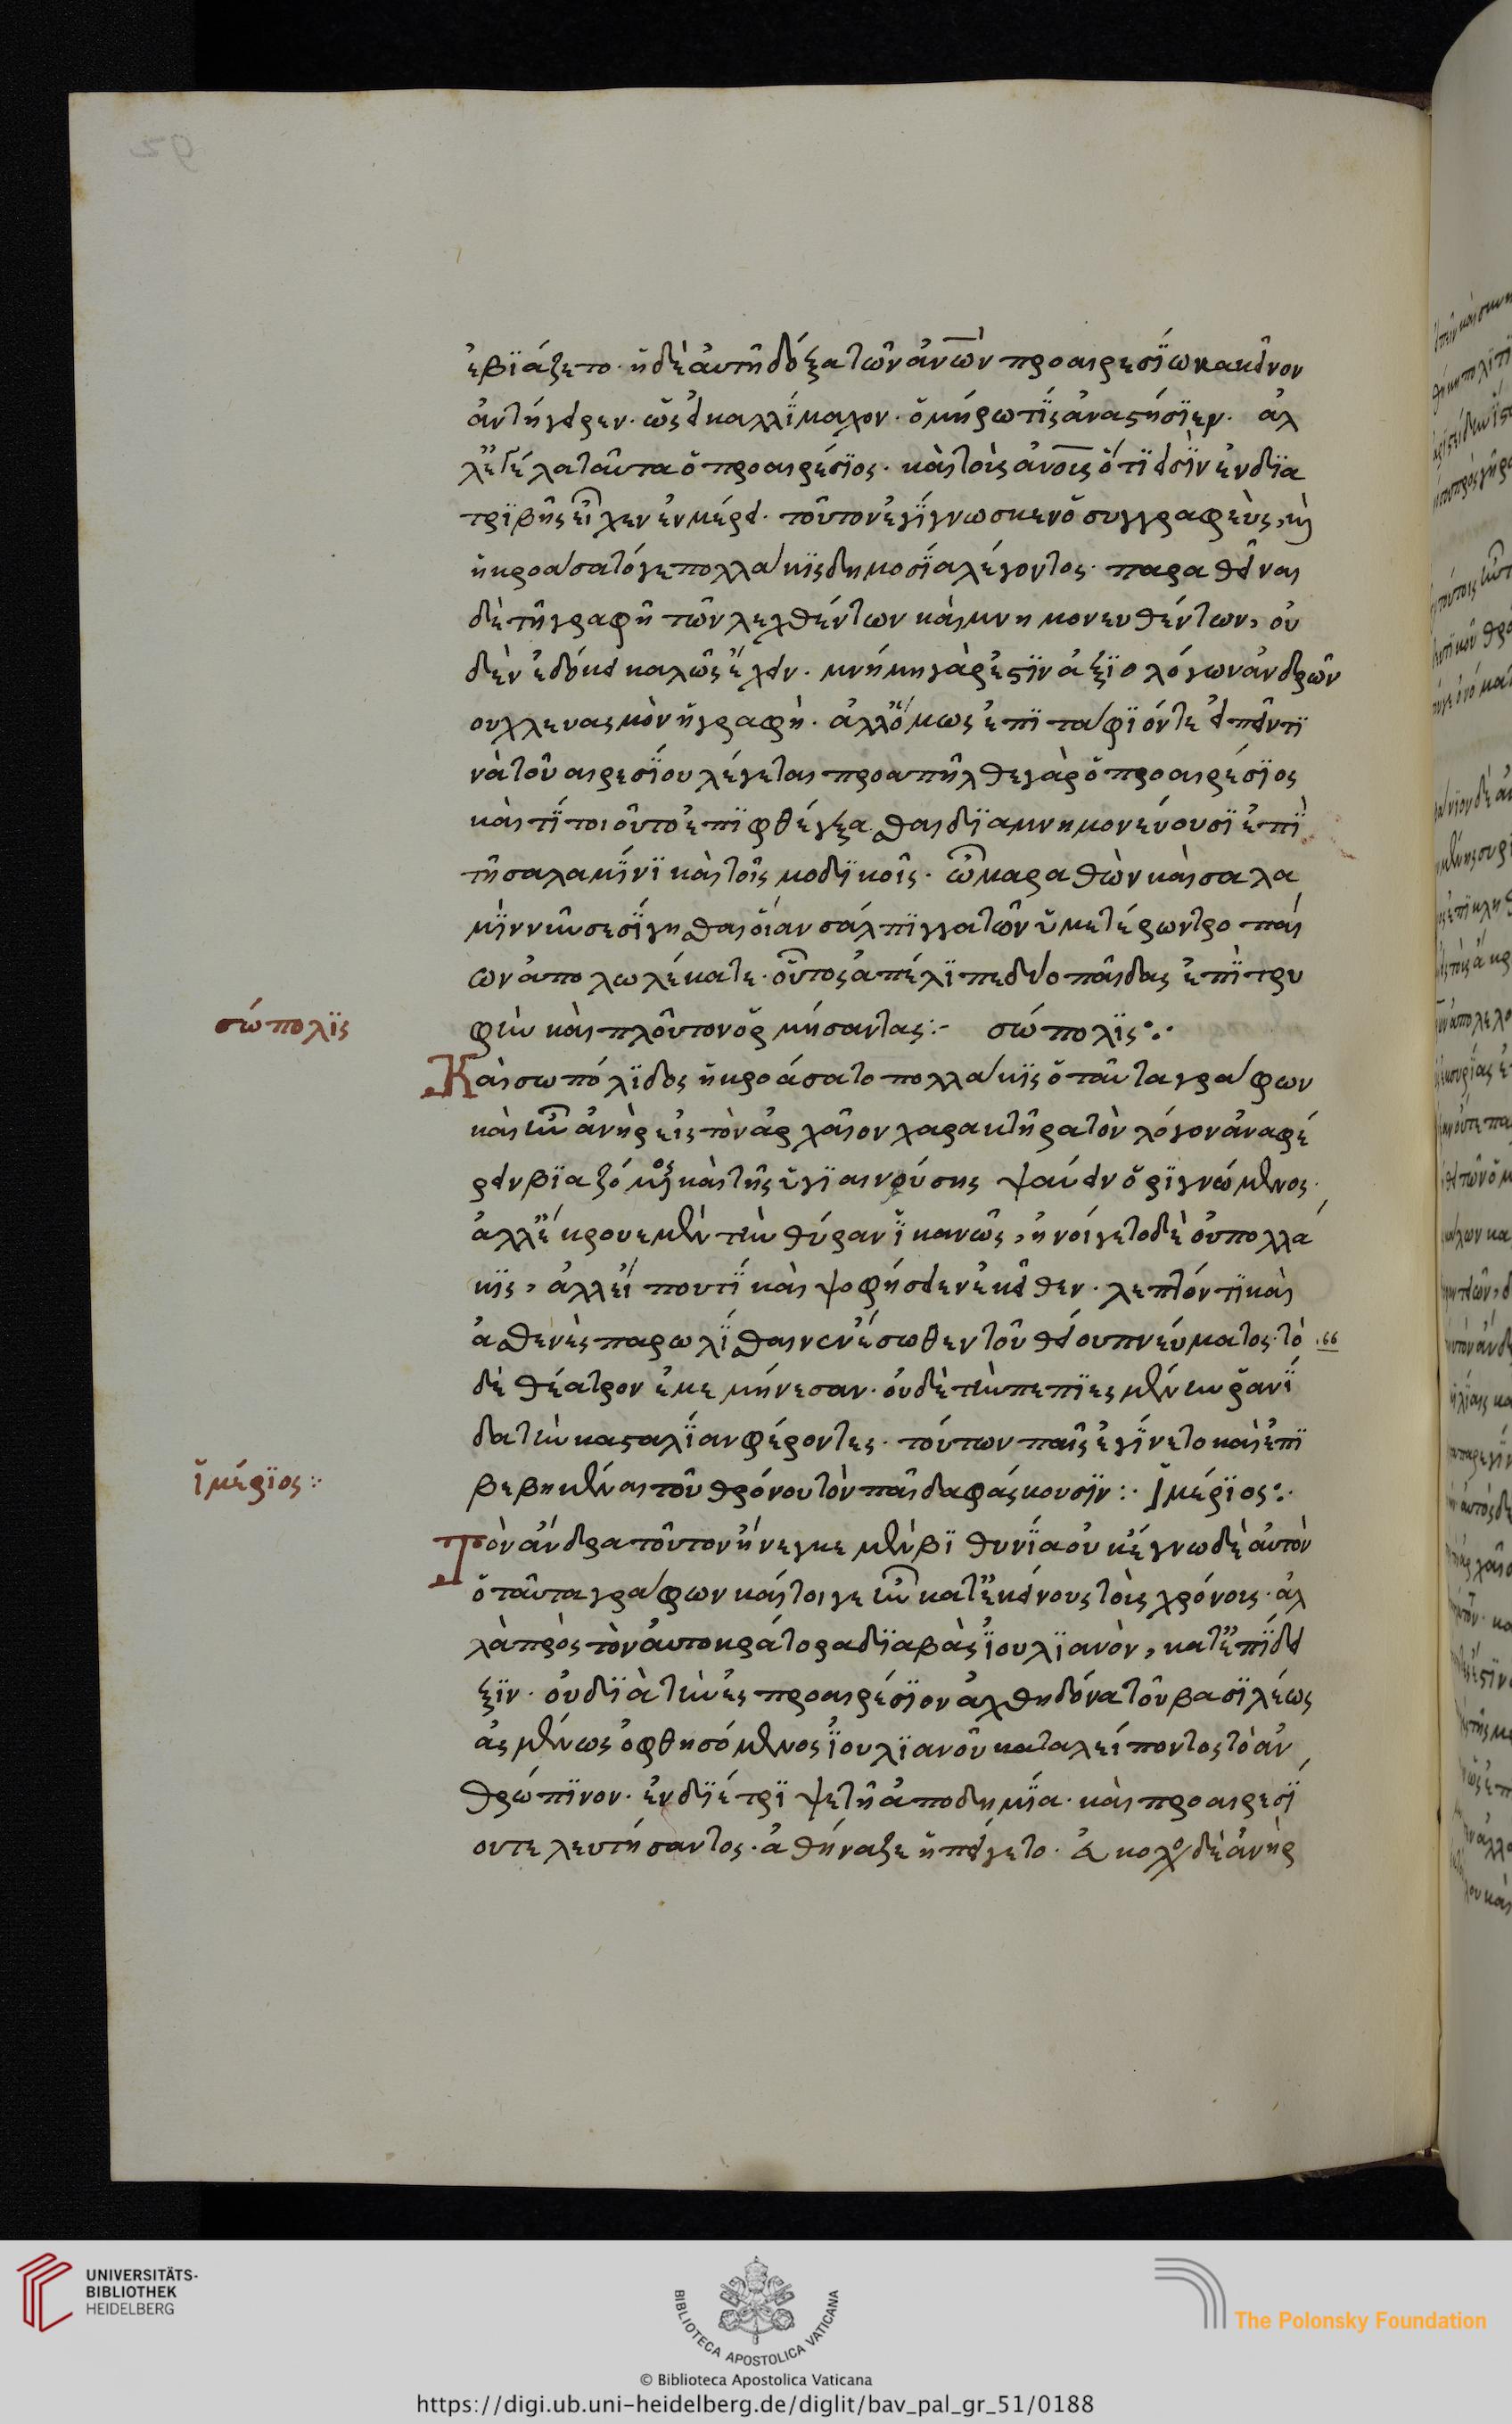 ἐβϊάζετο· ἡ δὲ ἀυτῆ δόξα τῶν ἀν̅ω̅ν̅ προαιρεσΐω κακεῖνον
ἀντήγειρεν· ὡς εἰ καλλΐμαχον· ὁμήρω τΐς ἀναστήσϊεν· ἀλ
λ' ἐγέλα ταῦτα ὁ προαιρέσϊος· καὶ τοὺς ἀν̅ο̅υ̅ς ὅ,τϊ εἰσὶν ἐν δϊα
τρϊβῆς εἶχεν ἐν μέρει· τοῦτον ἐγΐγνωσκεν ὁ συγγραφεὺς, καὶ
ἠκροάσατό γε πολλάκϊς δημοσΐα λέγοντος· παραθεῖναι
δὲ τῆ γραφῆ τῶν λεχθέντων καὶ μνημονευθέντων, οὐ
δὲν ἐδόκει καλῶς ἔχειν· μνήμη γὰρ ἐστϊν ἀξϊολόγων ἀνδρῶν
οὐ χλευασμὸν ἡ γραφὴ· ἀλλ' ὅμως ἐπϊτάφϊόν τε εἰπεῖν τϊ
νὰ τοῦ αιρεσΐου λέγεται προαπῆλθε γὰρ ὁ προαιρέσϊος
καὶ τΐ τοιοῦτο ἐπϊφθέγξασθαι δϊαμνημονεύουσϊ ἐπϊ
τῆ σαλαμῖνϊ καὶ τοῖς μοδϊκοῖς· ὦ μαραθὼν καὶ σαλα
μὶν νῦν σεσΐγησθαι· οἵαν σάλπϊγγα τῶν ὑμετέρων τρο παί
ων ἀπολωλέκατε· οὗτος ἀπέλϊπε δύο παῖδας ἐπὶ τρυ
φὴν καὶ πλοῦτον ὁρμήσαντας:- σώπολϊς:·
σώπολϊς
Καὶ σωπόλϊδος ἠκροάσατο πολλάκϊς ὁ ταῦτα γράφων
καὶ ἦν ἀνὴρ εἰς τὸν ἀρχαῖον χαρακτῆρα τὸν λόγον ἀναφέ
ρειν βϊαζόμενος καὶ τῆς ὑγϊαινούσης ψαύειν ὀρϊγνώμενος·
ἀλλ' ἔκρουε μὲν τὴν θύραν ἱκανῶς, ἠνοίγετο δὲ οὐ πολλά
κϊς, ἀλλ' εἴ που τΐ καὶ ψοφήσειεν ἐκεῖθεν· λεπτόν τϊ καὶ
ἀσθενὲς παρωλΐσθαινεν ἔσωθεν τοῦ θείου πνεύματος· τὸ
δὲ θέατρον ἐμεμήνεσαν· οὐδὲ τὴν πεπϊεσμένην ῥανΐ
δα τὴν κασταλΐαν φέροντες· τούτων παῖς ἐγΐνετο καὶ ἐπϊ
βεβηκέναι τοῦ θρόνου τὸν παῖδα φάσκουσϊν:· ἱμέρϊος:·
ἱμέρϊος:·
Τὸν ἄνδρα τοῦτον ἤνεγκε μὲν βϊθυνΐα οὐκ ἔγνω δὲ ἀυτὸν
ὁ ταῦτα γράφων καί τοι γε ἦν κατ' ἐκείνους τοὺς χρόνους· ἀλ
λὰ πρὸς τὸν ἀυτοκράτορα δϊαβὰς ἰουλϊανὸν, κατ' ἐπϊδει
ξϊν· οὐ δϊὰ τὴν ἐς προαιρέσϊον ἀχθηδόνα τοῦ βασϊλέως
ἀσμένως ὀφθησόμενος ἰουλϊανοῦ καταλείποντος τὸ ἀν
θρώπϊνον· ἐνδϊέτρϊψε τῆ ἀποδημΐα· καὶ προαιρεσΐ
ου τελευτήσαντος· ἀθήναζε ἠπείγετο· εὔκολος δὲ ἀνὴρ
UNIVERSITÄTS-
BIBLIOTHEK
HEIDELBERG
BIBLIOTECA APOSTOLICA VATICANA
The Polonsky Foundation
© Biblioteca Apostolica Vaticana
https://digi.ub.uni-heidelberg.de/diglit/bav_pal_gr_51/0188